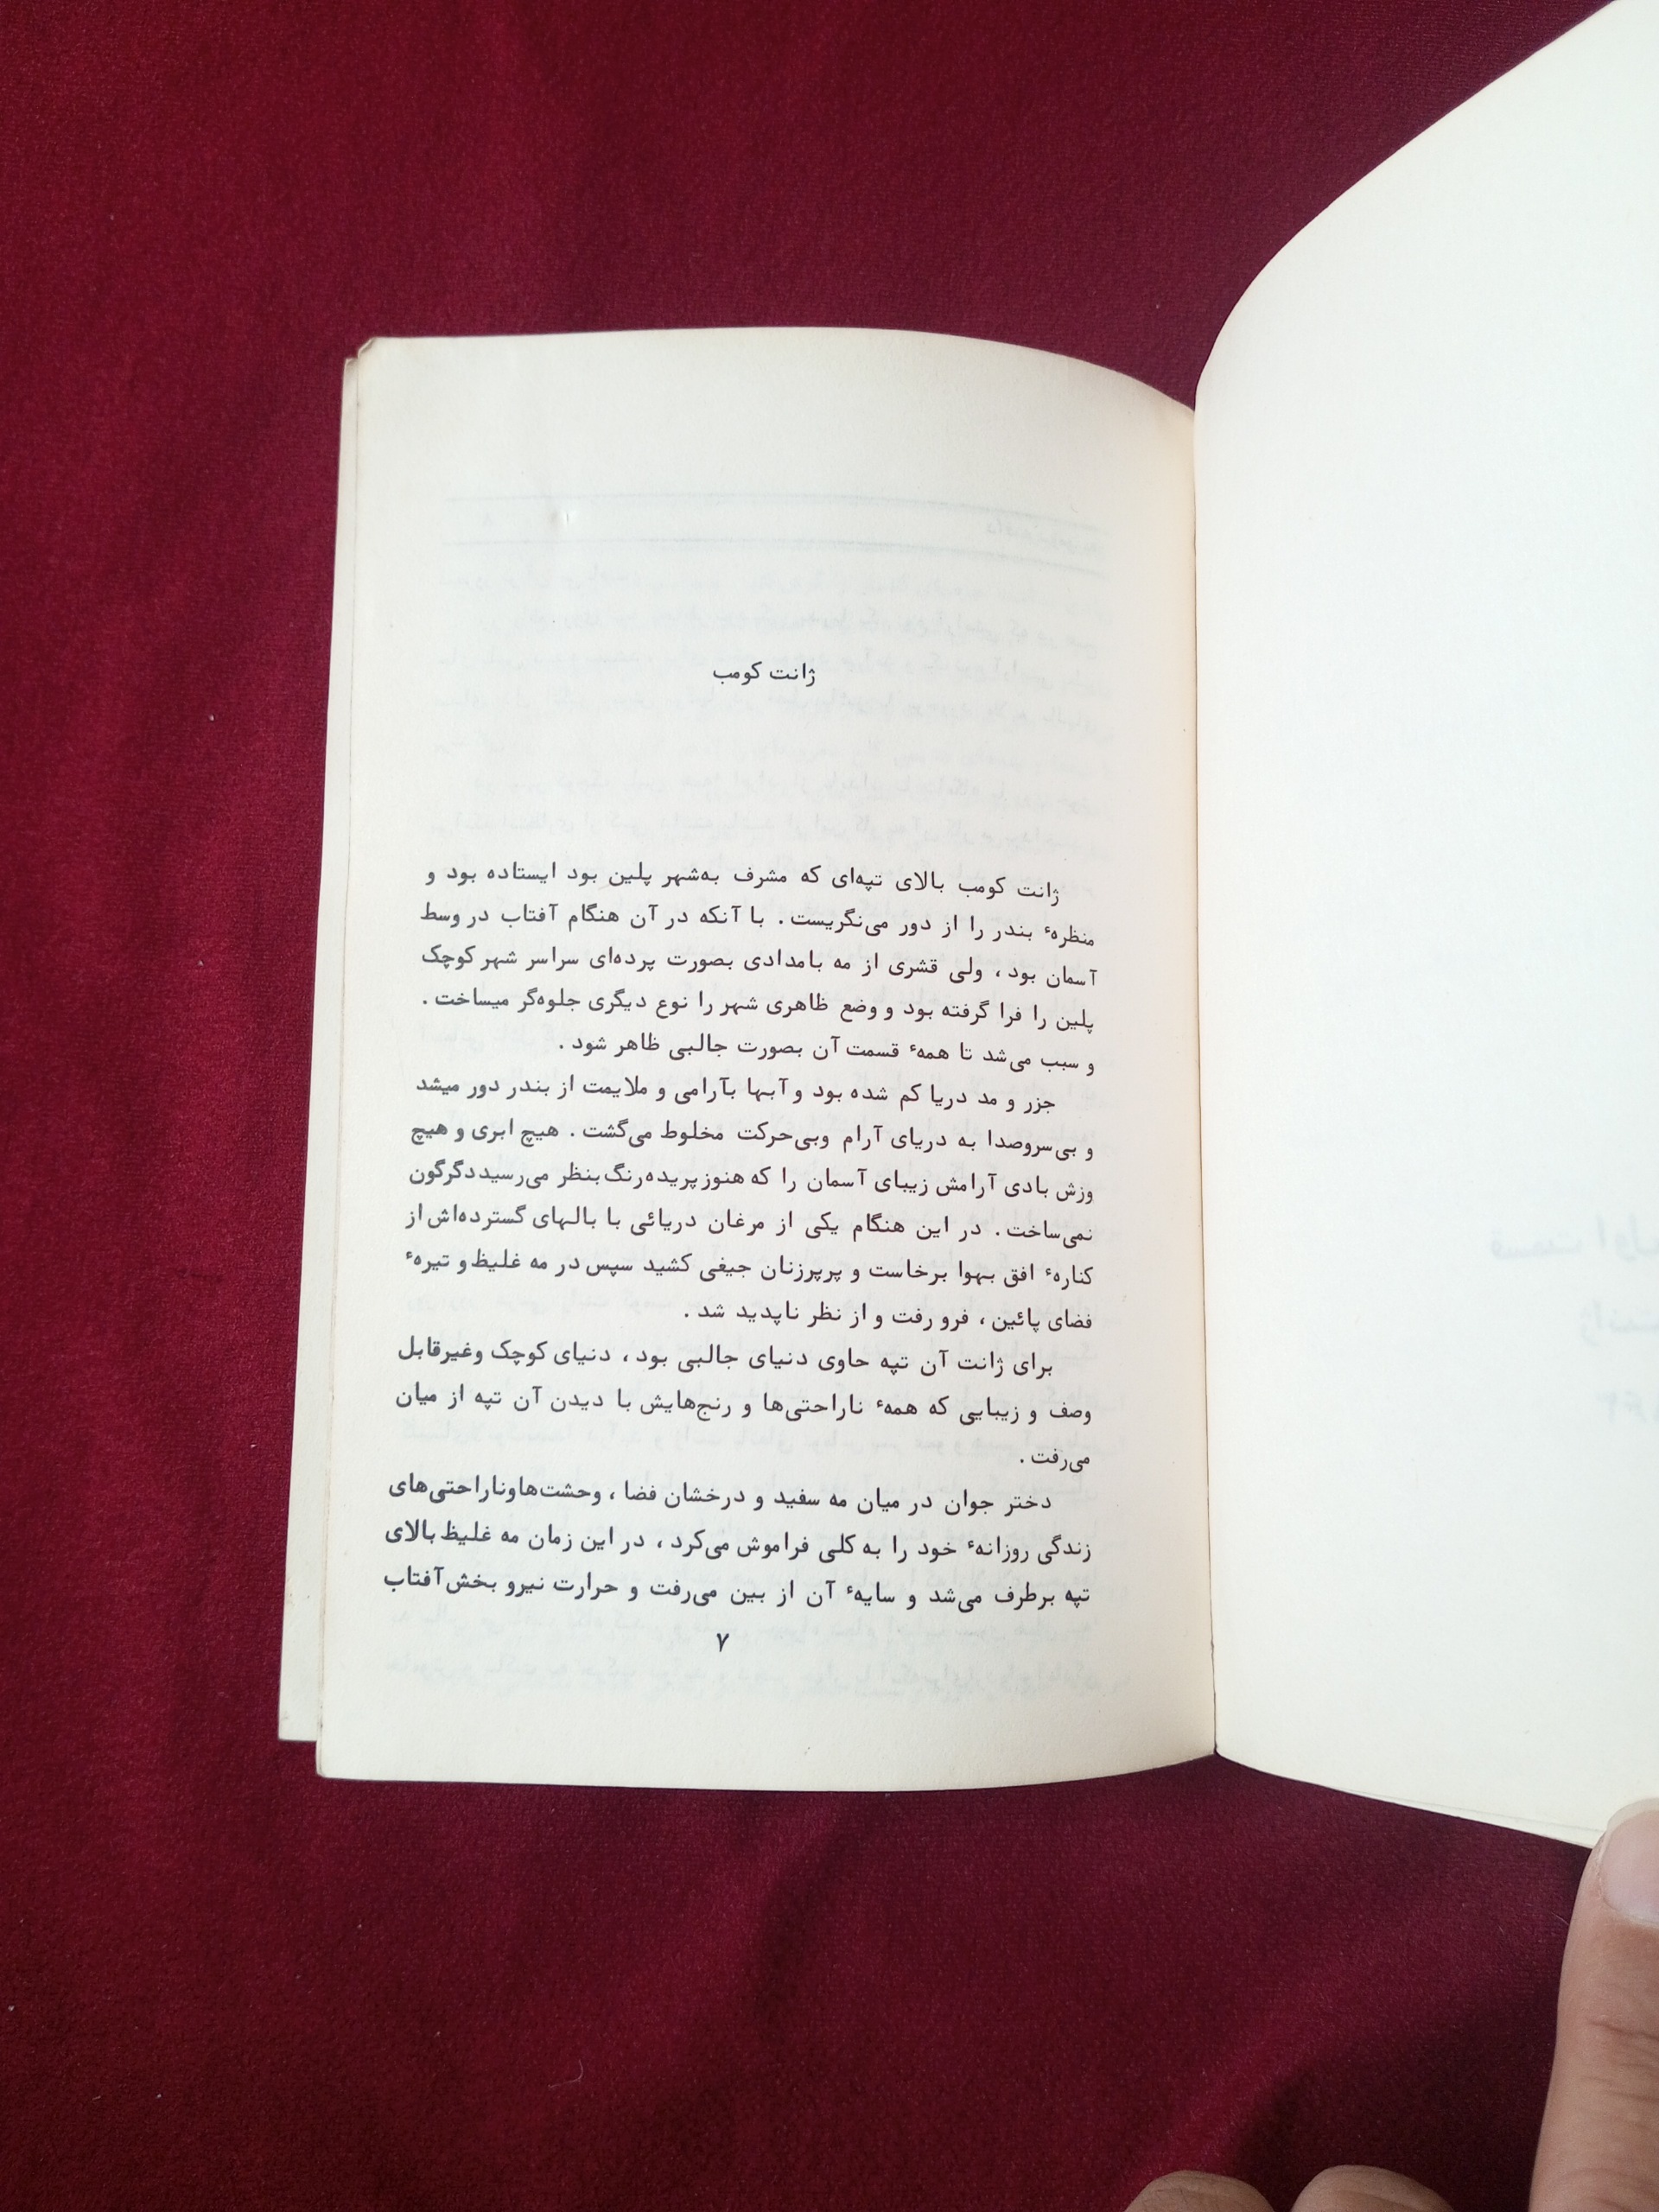 ژانت کومب
ژانت کومب بالای تپه‌ای که مشرف به‌شهر پلین بود ایستاده بود و
منظرهٔ بندر را از دور می‌نگریست. با آنکه در آن هنگام آفتاب در وسط
آسمان بود، ولی قشری از مه بامدادی بصورت پرده‌ای سراسر شهر کوچک
پلین را فرا گرفته بود و وضع ظاهری شهر را نوع دیگری جلوه‌گر میساخت.
و سبب می‌شد تا همهٔ قسمت آن بصورت جالبی ظاهر شود.
جزر و مد دریا کم شده بود و آبها بآرامی و ملایمت از بندر دور میشد
و بی‌سروصدا به دریای آرام وبی‌حرکت مخلوط می‌گشت. هیچ ابری و هیچ
وزش بادی آرامش زیبای آسمان را که هنوز پریده‌رنگ بنظر می‌رسید دگرگون
نمی‌ساخت. در این هنگام یکی از مرغان دریائی با بالهای گسترده‌اش از
کنارهٔ افق بهوا برخاست و پرپرزنان جیغی کشید سپس در مه غلیظ و تیرهٔ
فضای پائین، فرو رفت و از نظر ناپدید شد.
برای ژانت آن تپه حاوی دنیای جالبی بود، دنیای کوچک وغیرقابل
وصف و زیبایی که همهٔ ناراحتی‌ها و رنج‌هایش با دیدن آن تپه از میان
می‌رفت.
دختر جوان در میان مه سفید و درخشان فضا، وحشت‌هاوناراحتی‌های
زندگی روزانهٔ خود را به کلی فراموش می‌کرد، در این زمان مه غلیظ بالای
تپه برطرف می‌شد و سایهٔ آن از بین می‌رفت و حرارت نیرو بخش آفتاب
۷